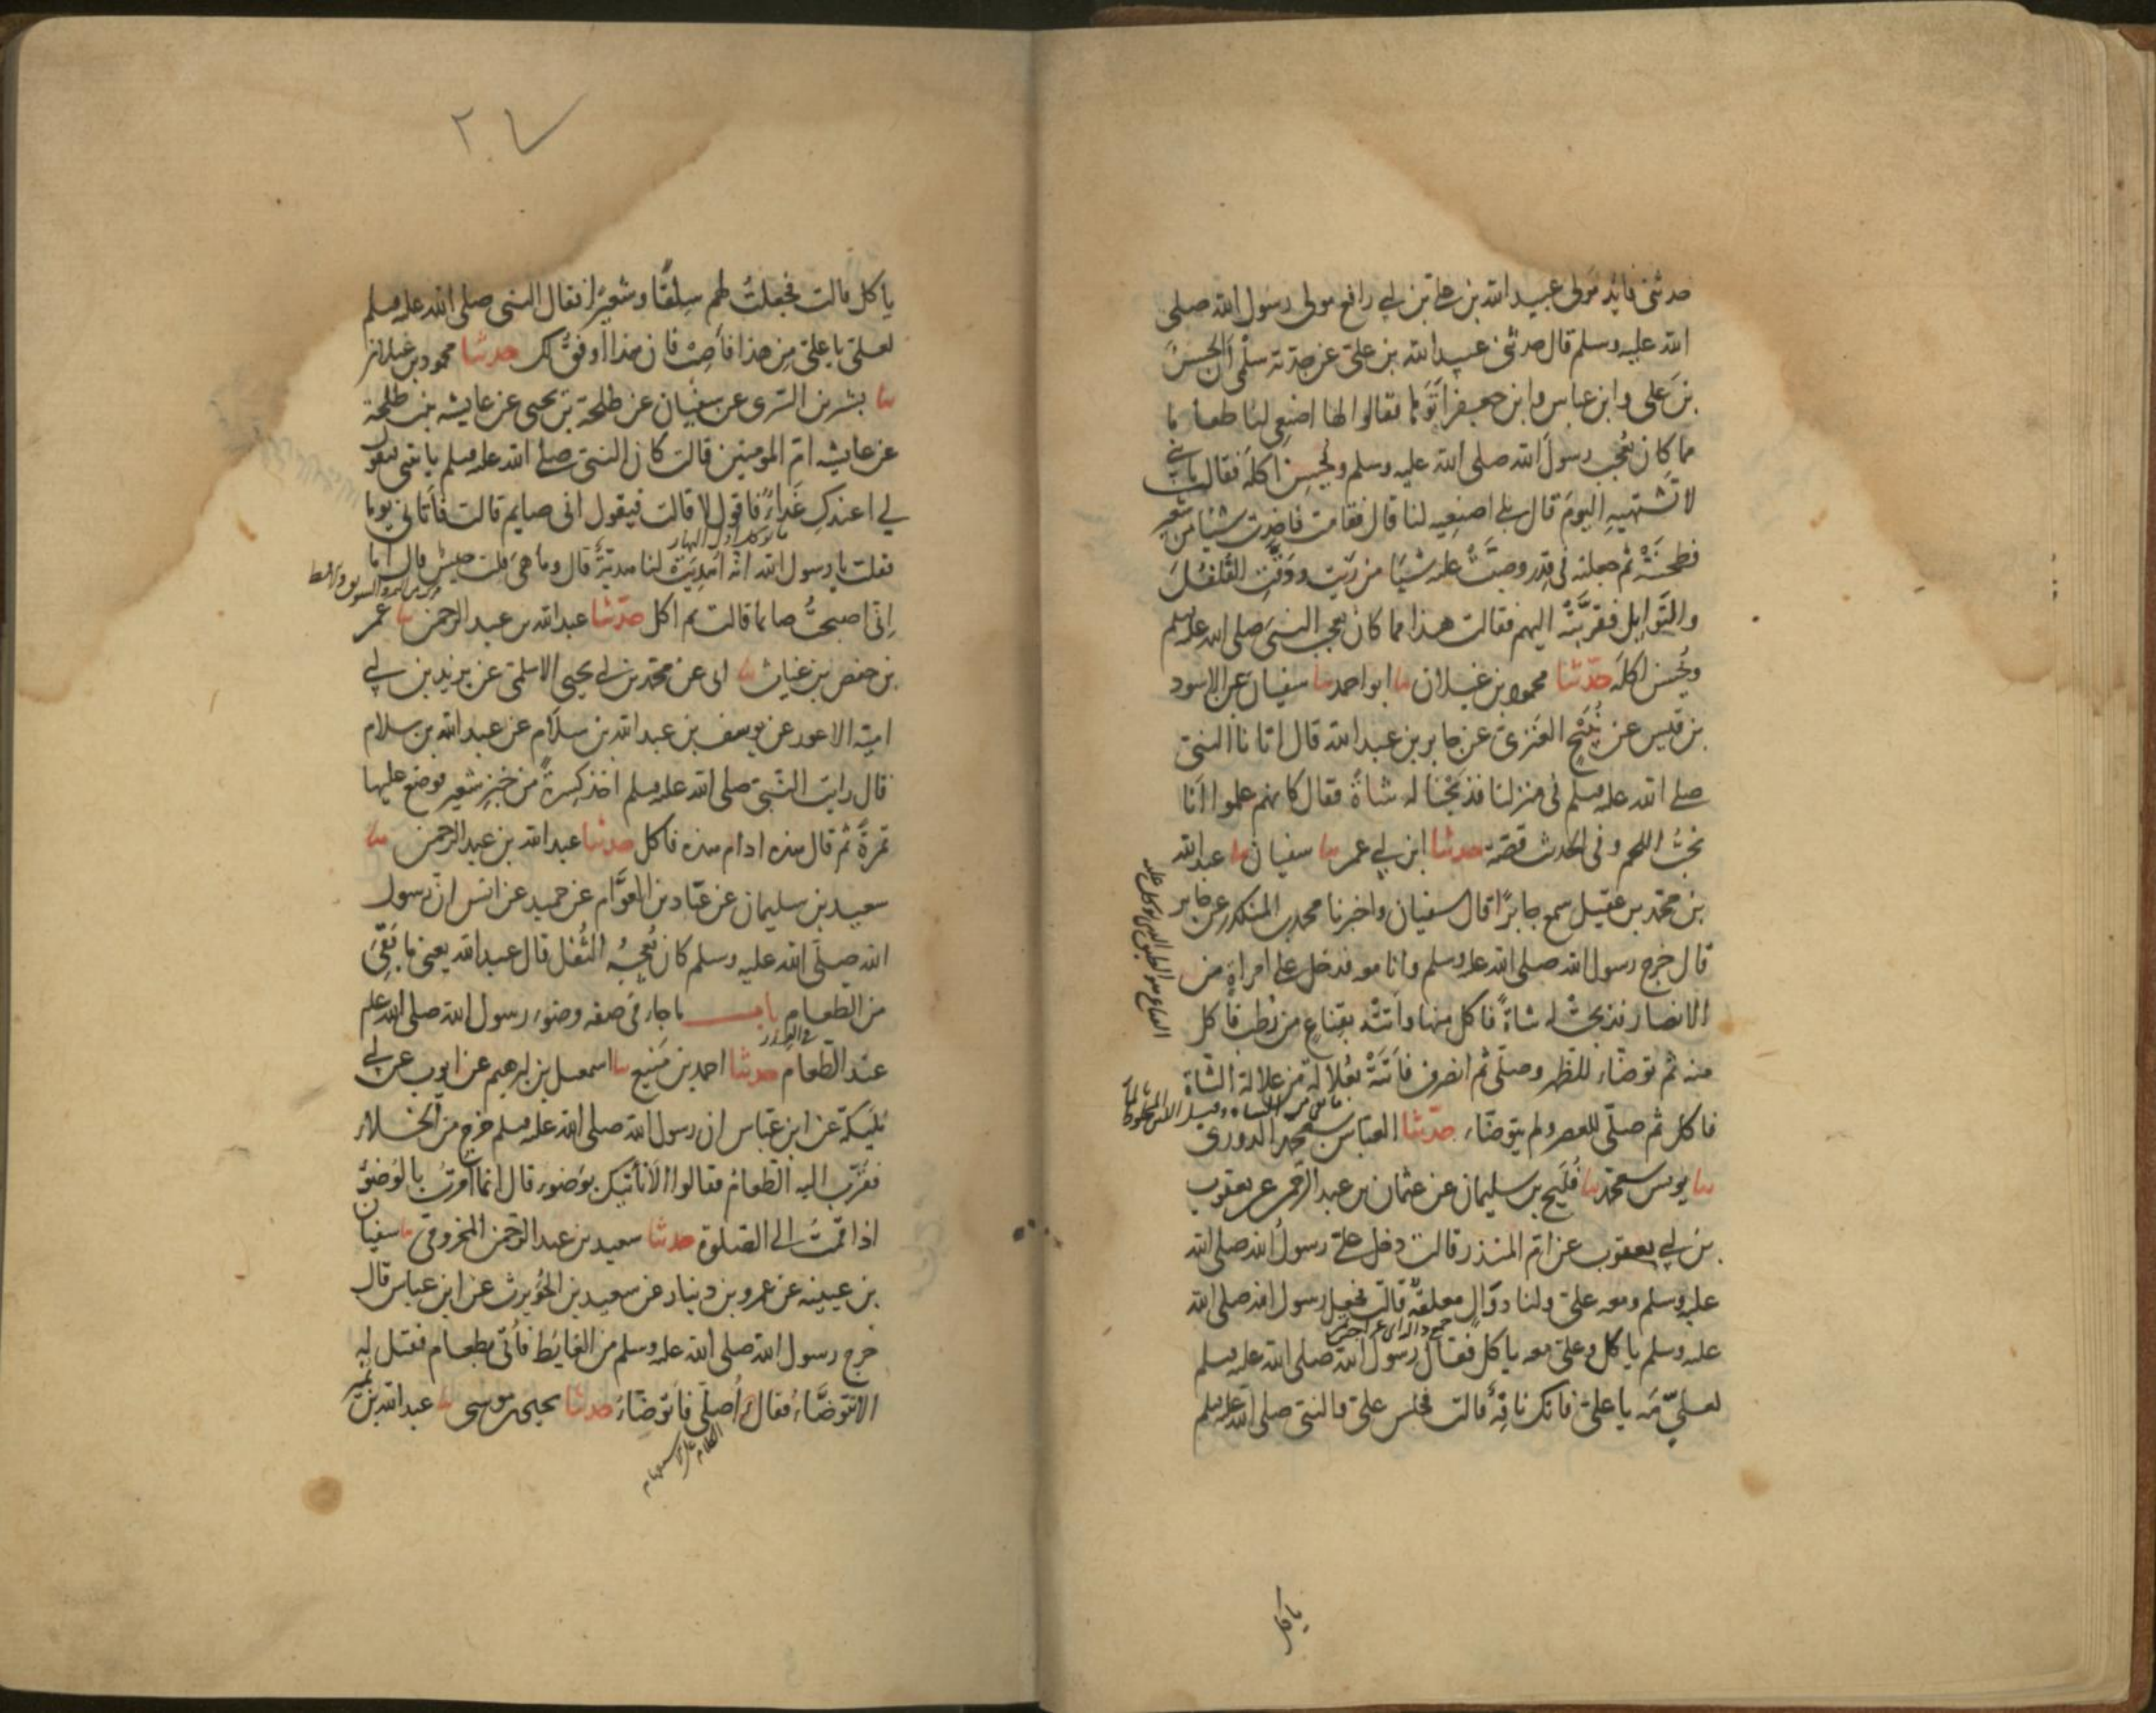 حدثني فائد مولى عبيد الله بن علي بن ابي رافع مولى رسول الله صلى
الله عليه وسلم قال حدثني عبيد الله بن علي عن جدته سلمى ان الحسن
بن علي وابن عباس وابن جعفر اتوها فقالوا لها اصنعي لنا طعاما
مما كان يعجب رسول الله صلى الله عليه وسلم ويحسن اكله فقالت يا بني
لا تشتهيه اليوم قال بلى اصنعيه لنا قال فقامت فاخذت شيئا من شعير
فطحنته ثم جعلته في قدر وصبت عليه شيئا من زيت ودقت الفلفل
والتوابل فقربته اليهم فقالت هذا مما كان يعجب النبي صلى الله عليه وسلم
ويحسن اكله حدثنا محمود بن غيلان ثنا ابو احمد ثنا سفيان عن الاسود
بن قيس عن نبيح العنزي عن جابر بن عبد الله قال اتانا النبي
صلى الله عليه وسلم في منزلنا فذبحنا له شاة فقال كانهم علموا انا
نحب اللحم وفي الحديث قصة حدثنا ابن ابي عمر ثنا سفيان ثنا عبد الله
بن محمد بن عقيل سمع جابرا قال سفيان واخبرنا محمد بن المنكدر عن جابر
قال خرج رسول الله صلى الله عليه وسلم وانا معه فدخل على امراة من
الانصار فذبحت له شاة فاكل منها واتته بقناع من رطب فاكل
القناع هو الطبق الذي يوكل عليه
منه ثم توضاء للظهر وصلى ثم انصرف فاتته بعلالة من علالة الشاة
فاكل ثم صلى للعصر ولم يتوضاء حدثنا العباس بن محمد الدوري
ثنا يونس بن محمد ثنا فليح بن سليمان عن عثمان بن عبد الرحمن عن يعقوب
بن ابي يعقوب عن ام المنذر قالت دخل علي رسول الله صلى الله
عليه وسلم ومعه علي ولنا دوال معلقة قالت فجعل رسول الله صلى الله
عليه وسلم ياكل وعلي معه ياكل فقال رسول الله صلى الله عليه وسلم
لعلي مه يا علي فانك ناقه قالت فجلس علي والنبي صلى الله عليه وسلم
ياكل
٢٧
ياكل قالت فجعلت لهم سلقا وشعيرا فقال النبي صلى الله عليه وسلم
لعلي يا علي من هذا فاصب فان هذا اوفق لك حدثنا محمود بن غيلان
ثنا بشر بن السري عن سفيان عن طلحة بن يحيى عن عايشة بنت طلحة
عن عايشة ام المومنين قالت كان النبي صلى الله عليه وسلم ياتيني فيقول
لي اعندك غداء فاقول لا قالت فيقول اني صايم قالت فاتاني يوما
ما يوكل اول النهار
فقلت يا رسول الله انه اهديت لنا هدية قال وما هي قلت حيس قال اما
اني اصبحت صائما قالت ثم اكل حدثنا عبد الله بن عبد الرحمن ثنا عمر
بن حفص بن غياث ثنا ابي عن محمد بن ابي يحيى الاسلمي عن يزيد بن ابي
امية الاعور عن يوسف بن عبد الله بن سلام عن عبد الله بن سلام
قال رايت النبي صلى الله عليه وسلم اخذ كسرة من خبز شعير فوضع عليها
تمرة ثم قال هذه ادام هذه فاكل حدثنا عبد الله بن عبد الرحمن ثنا
سعيد بن سليمان عن عباد بن العوام عن حميد عن انس ان رسول
الله صلى الله عليه وسلم كان يعجبه الثفل قال عبد الله يعني ما بقي
من الطعام باب ما جاء في صفة وضوء رسول الله صلى الله عليه وسلم
عند الطعام حدثنا احمد بن منيع ثنا اسمعيل بن ابرهيم عن ايوب عن ابي
مليكة عن ابن عباس ان رسول الله صلى الله عليه وسلم خرج من الخلاء
فقرب اليه الطعام فقالوا الا ناتيك بوضوء قال انما امرت بالوضوء
اذا قمت الى الصلوة حدثنا سعيد بن عبد الرحمن المخزومي ثنا سفيان
بن عيينه عن عمرو بن دينار عن سعيد بن الحويرث عن ابن عباس قال
خرج رسول الله صلى الله عليه وسلم من الغايط فاتي بطعام فقيل له
الا تتوضاء فقال أصلي فاتوضاء حدثنا يحيى بن موسى ثنا عبد الله بن نمير
الكلام على الاستفهام